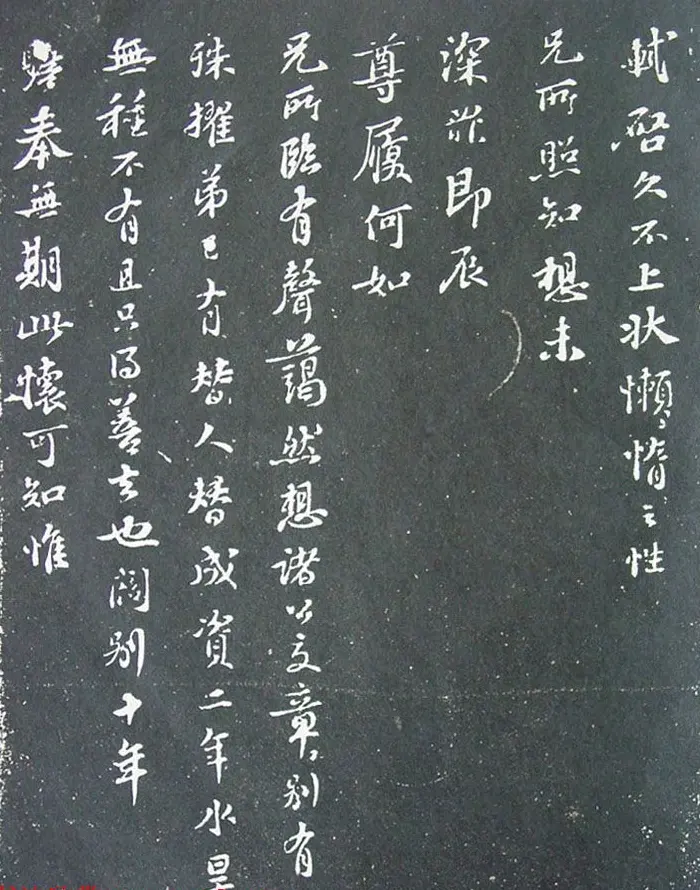 軾啓久不上狀懶惰之性
兄所照知想未
深罪即辰
尊履何如
兄所臨有聲藹然想諸公交章別有
殊擢弟已有替人替成資二年水旱
無種不有且只得善去也闊別十年
瞻奉無期此懷可知惟